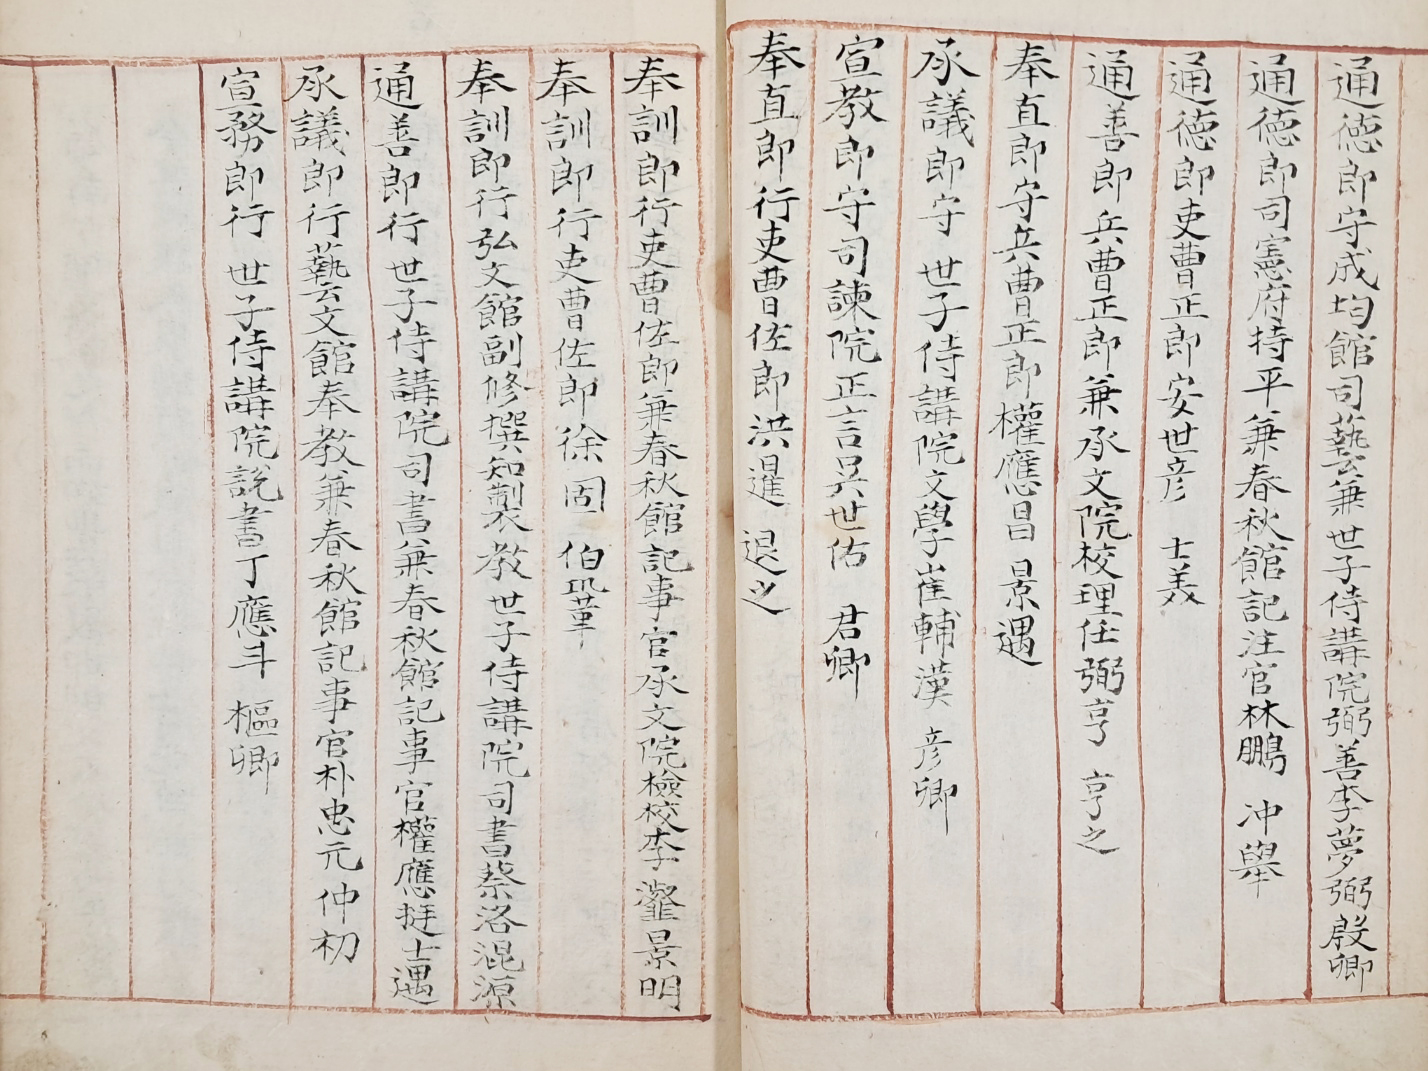 通德郎守成均館司藝兼世子侍講院弼善李夢弼殷卿
通德郎司憲府持平兼春秋館記注官林鵬 冲舉
通德郎吏曹正郎安世彦 士義
通善郎兵曹正郎兼承文院校理任弼亨 亨之
奉直郎守兵曹正郎權應昌 景遇
承議郎守 世子侍講院文學崔輔漢 彦卿
宣教郎守司諫院正言吳世佑 君卿
奉直郎行吏曹佐郎洪暹 退之
奉訓郎行吏曹佐郎兼春秋館記事官承文院檢校李瀣景明
奉訓郎行吏曹佐郎徐固 伯鞏
奉訓郎行弘文館副修撰知製教世子侍講院司書蔡洛混源
通善郎行世子侍講院司書兼春秋館記事官權應挺士遇
承議郎行藝文館奉教兼春秋館記事官朴忠元仲初
宣務郎行 世子侍講院說書丁應斗 樞卿